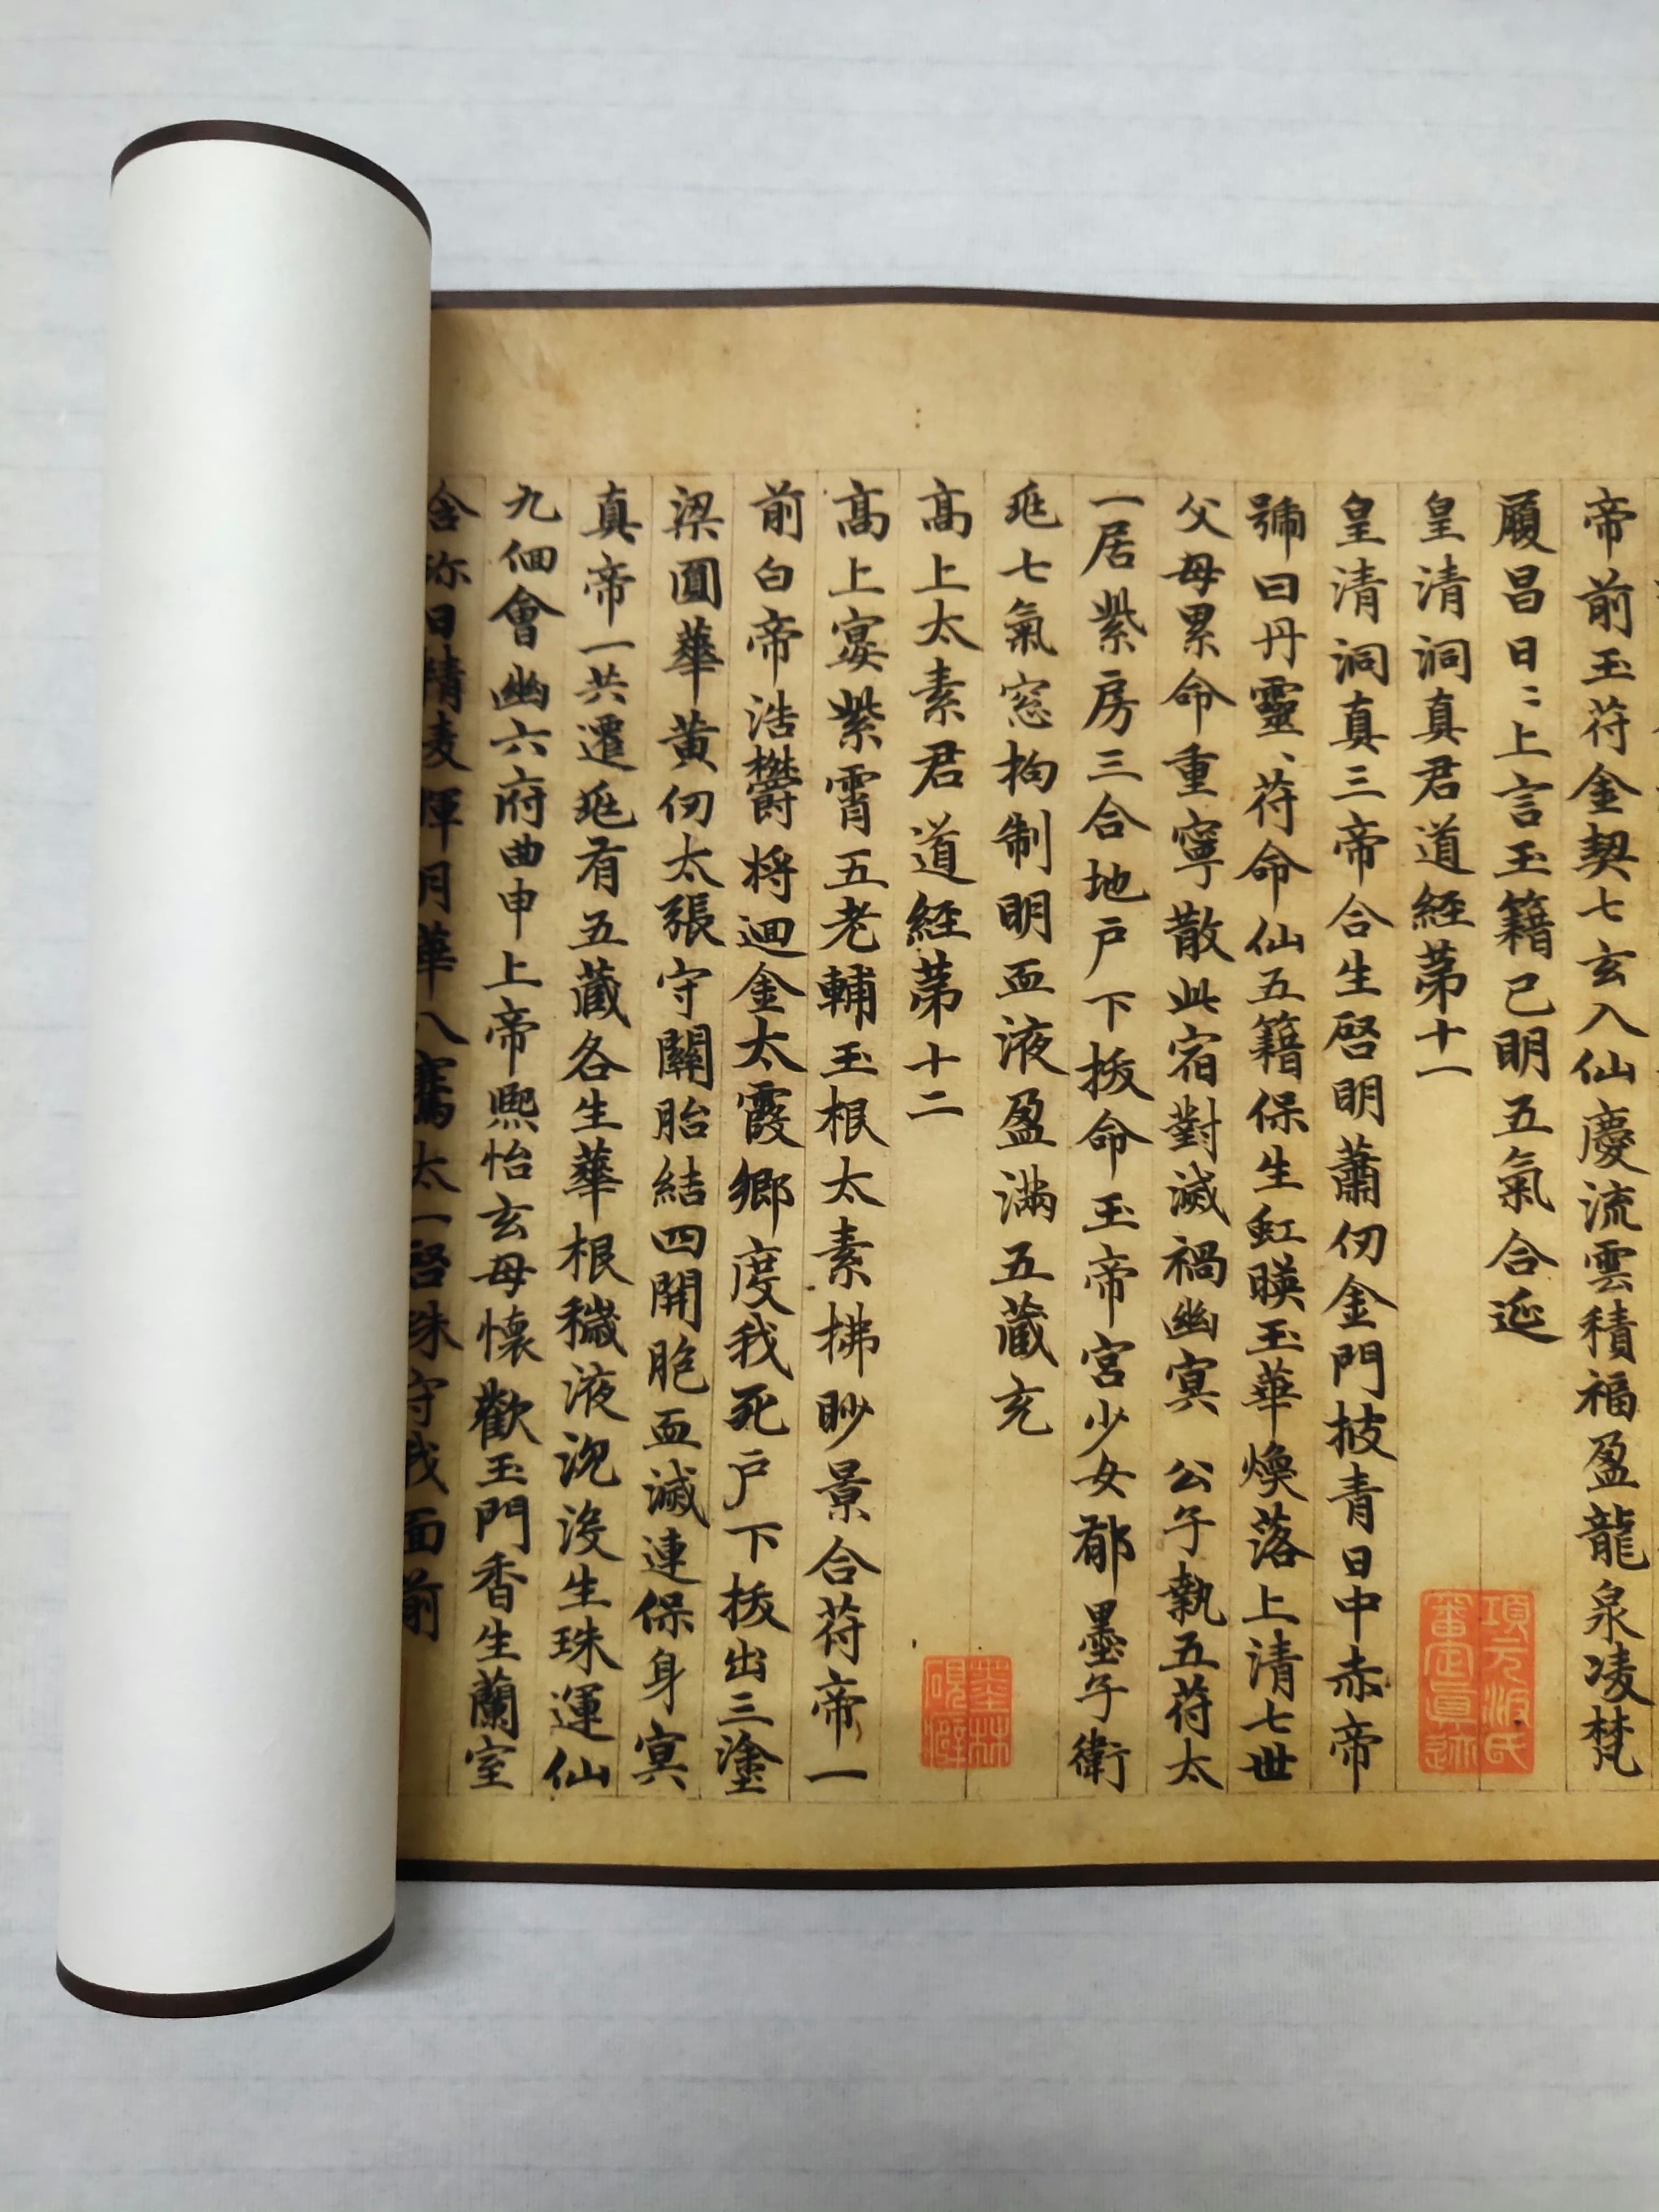 帝前玉苻金契七玄入仙慶流雲積福盈龍泉凌梵
履昌日〻上言玉籍已明五氣合延
皇清洞真君道經苐十一
皇清洞真三帝合生啓明蕭仞金門披青日中赤帝
號曰丹靈、苻命仙五籍保生虹暎玉華煥落上清七世
父母累命重寧散此宿對滅禍幽冥 公子執五苻太
一居紫房三合地戶下拔命玉帝宮少女郁墨子衛
死七氣窓拘制明血液盈滿五藏充
高上太素君道經苐十二
高上宴紫霄五老輔玉根太素拂眇景合苻帝一
前白帝浩欝將迴金太霞鄉度我死戶下拔出三塗
梁圓華黃仞太張守關胎結四開胞血滅連保身冥
真帝一共遷死有五藏各生華根穢液沈沒生珠運仙
九佪會幽六府曲申上帝熙怡玄母懷歡玉門香生蘭室
日精 月華八騫太一 珠守我面前
項元汴氏審定真跡
墨林硯癖